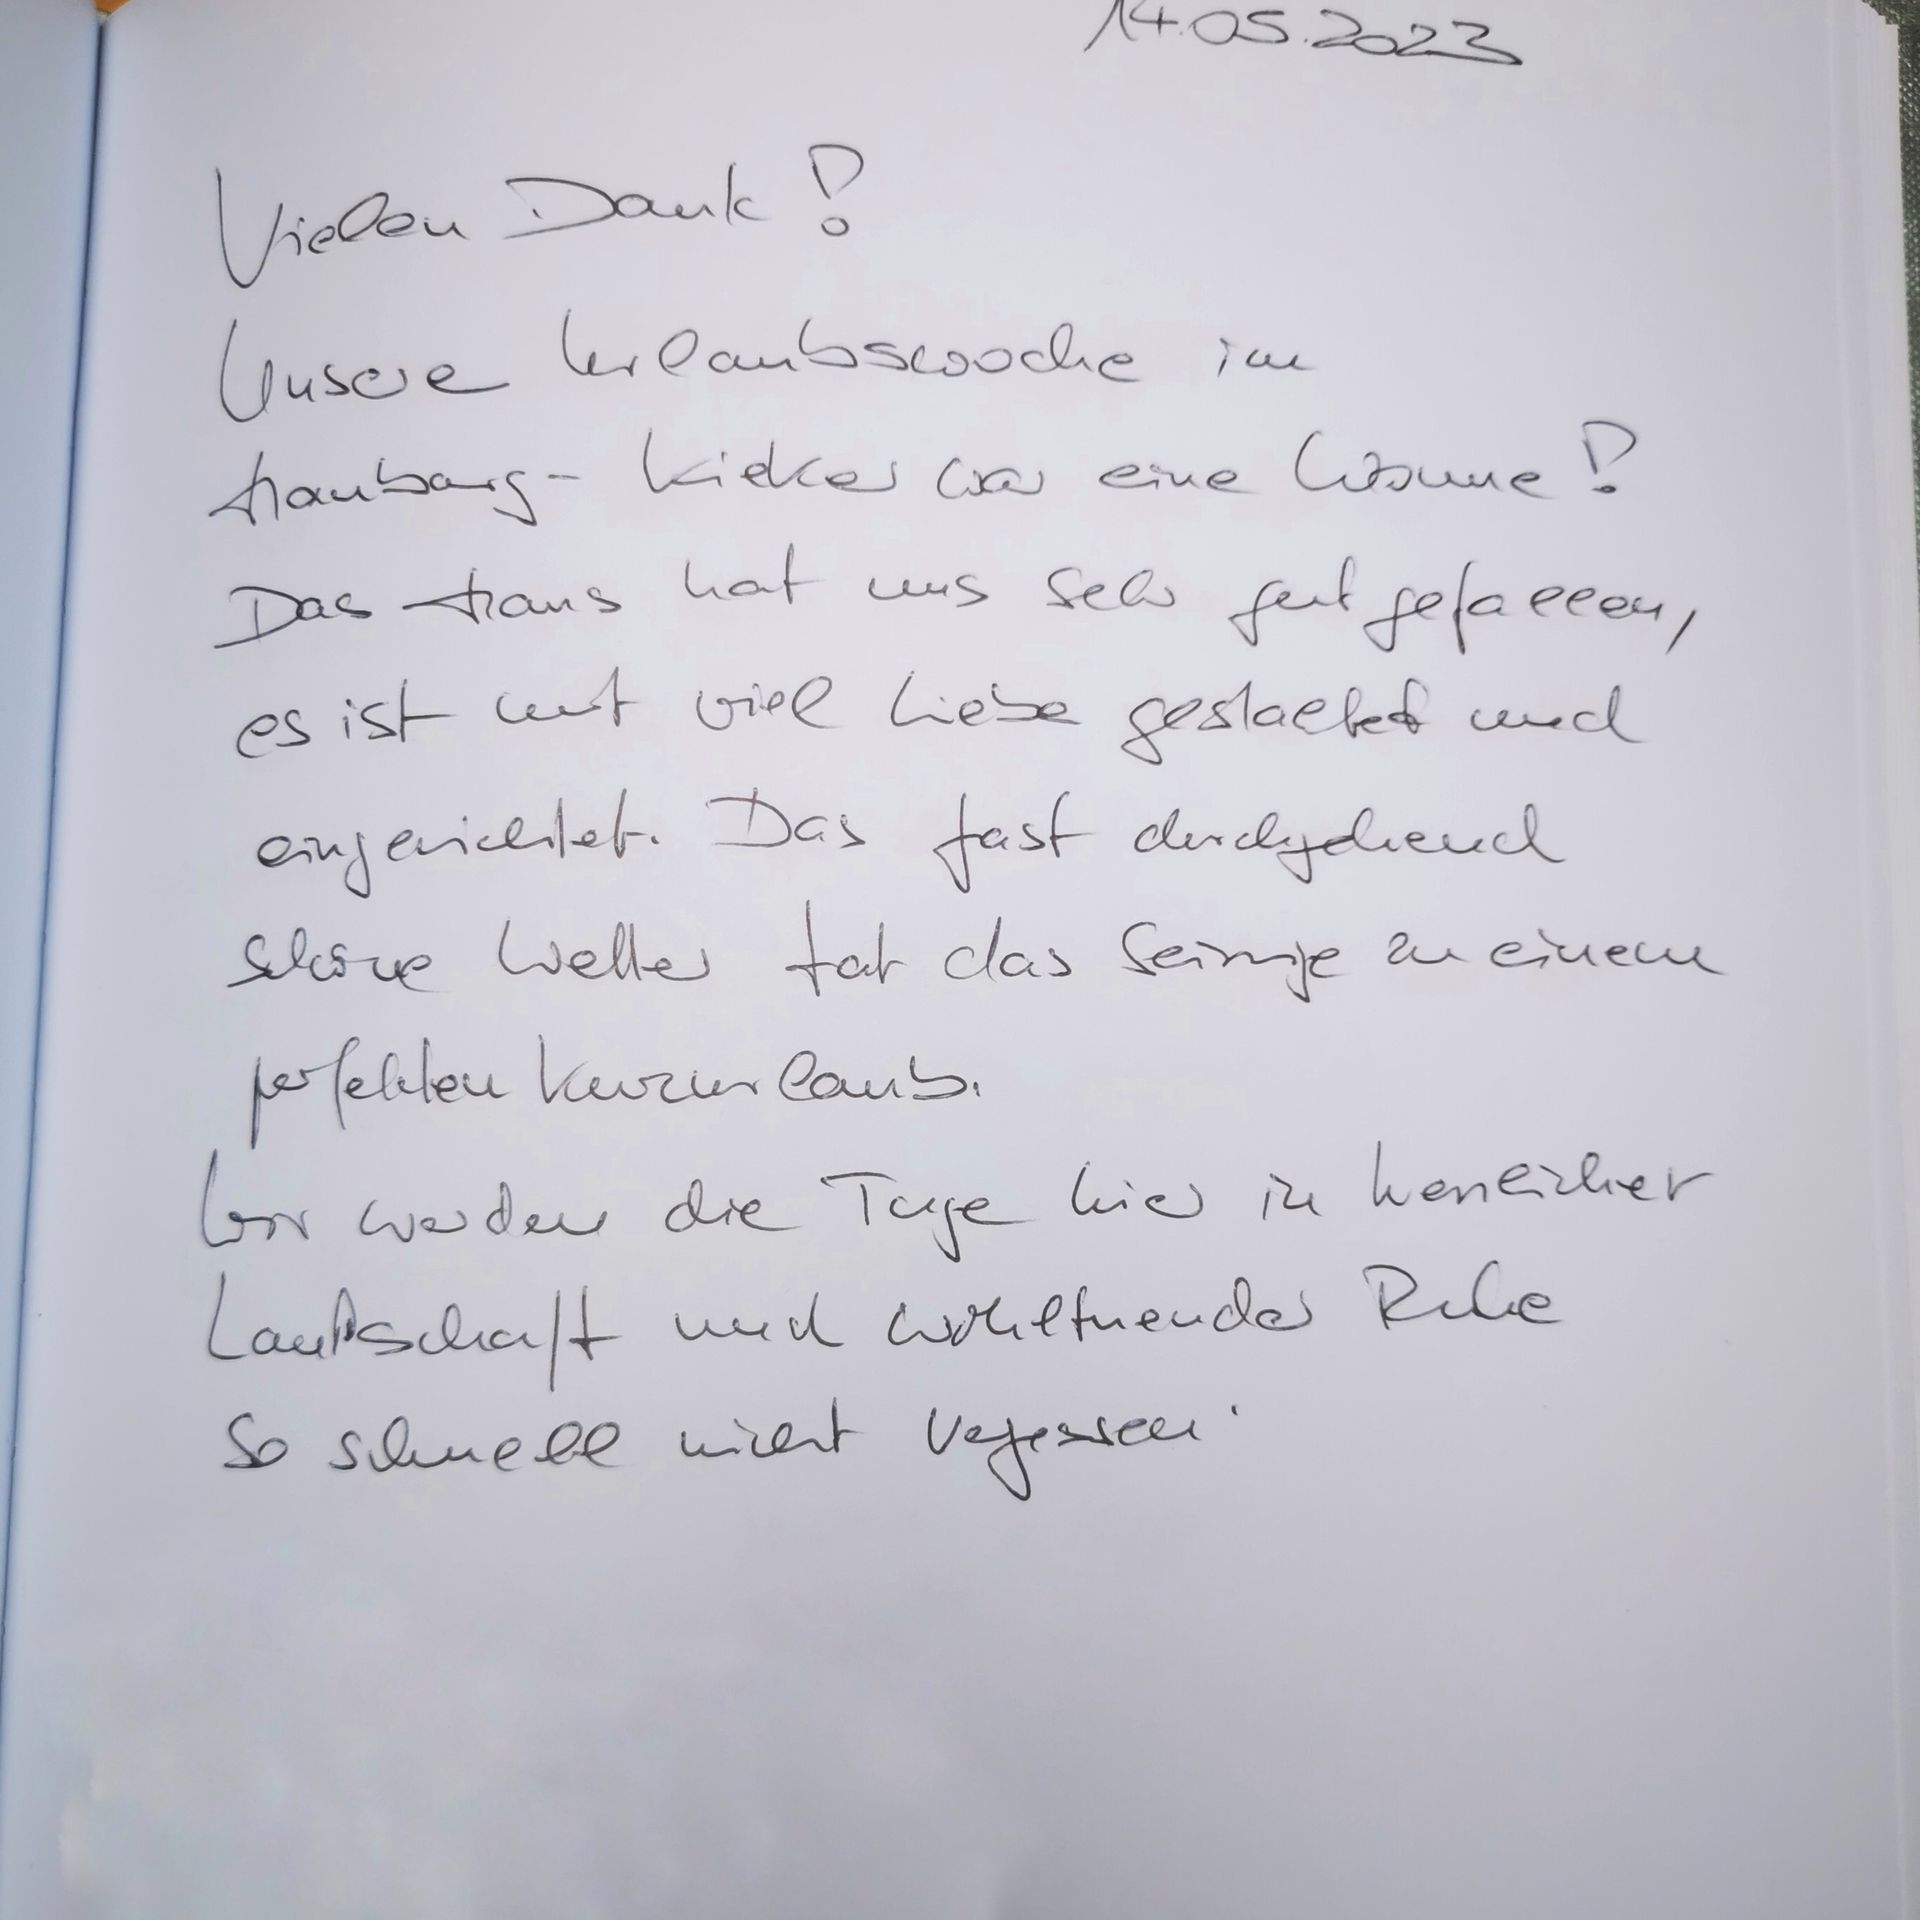 14.05.2023
Vielen Dank!
Unsere Urlaubswoche im
Haubarg-Kieker war eine Wonne!
Das Haus hat uns sehr gut gefallen,
es ist mit viel Liebe gestaltet und
eingerichtet. Das fast durchgehend
schöne Wetter tat das Seinige zu einem
perfekten Kurzurlaub.
Wir werden die Tage hier in herrlicher
Landschaft und wohltuender Ruhe
so schnell nicht vergessen.